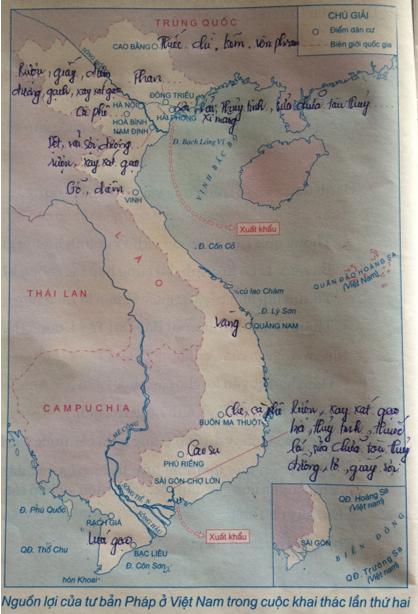 TRUNG QUỐC
CHÚ GIẢI
Điểm dân cư
Biên giới quốc gia
CAO BẰNG
Thiếc, chì, kẽm, vôn phram
SÔNG HỒNG
Rượu, giấy, diêm
đường, gạch, xay xát gạo
Than
HÀ NỘI
ĐÔNG TRIỀU
HẢI PHÒNG
thuỷ tinh, sửa chữa tàu thuỷ
xi măng
Cà phê
HOÀ BÌNH
NAM ĐỊNH
Đ. Bạch Long Vĩ
VỊNH BẮC BỘ
Dệt, vải sợi, đường
rượu, xay xát gạo
Gỗ, diêm
VINH
Xuất khẩu
LÀO
Đ. Cồn Cỏ
THÁI LAN
QUẦN ĐẢO HOÀNG SA
(Việt Nam)
cù lao Chàm
Đ. Lý Sơn
Vàng
QUẢNG NAM
CAMPUCHIA
S. MÊ CÔNG
chè, cà phê
BUÔN MA THUỘT
Rượu, xay xát gạo
thuỷ tinh, thuốc
lá, sửa chữa tàu thuỷ
đường,
Cao su
PHÚ RIỀNG
SÀI GÒN-CHỢ LỚN
SÔNG TIỀN
SÔNG HẬU
Đ. Phú Quốc
RẠCH GIÁ
Xuất khẩu
QĐ. Thổ Chu
Lúa gạo
BẠC LIÊU
Đ. Côn Sơn
hòn Khoai
QĐ. Hoàng Sa
(Việt nam)
SÀI GÒN
BIỂN ĐÔNG
QĐ. Trường Sa
(Việt Nam)
Nguồn lợi của tư bản Pháp ở Việt Nam trong cuộc khai thác lần thứ hai